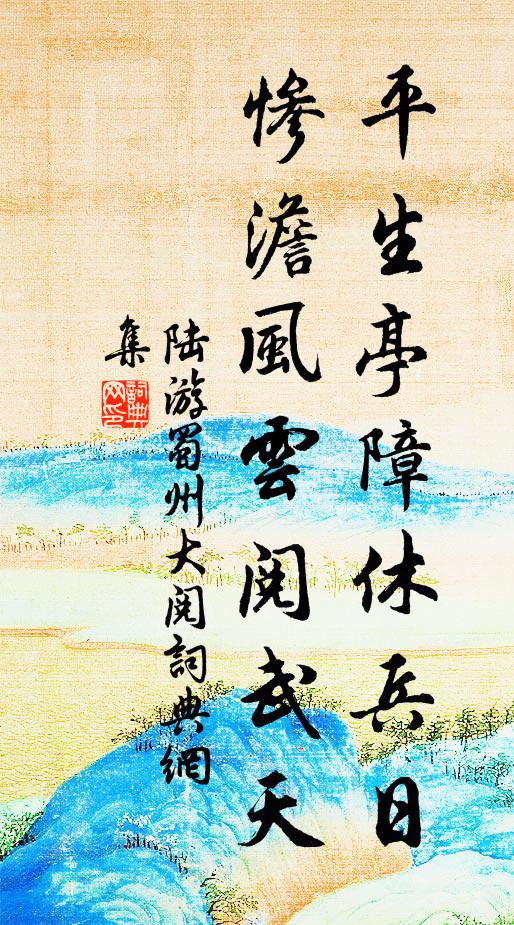 平生亭障休兵日
慘澹風雲閱武天
陸游蜀州大閱詞典網
集
詞典
网印